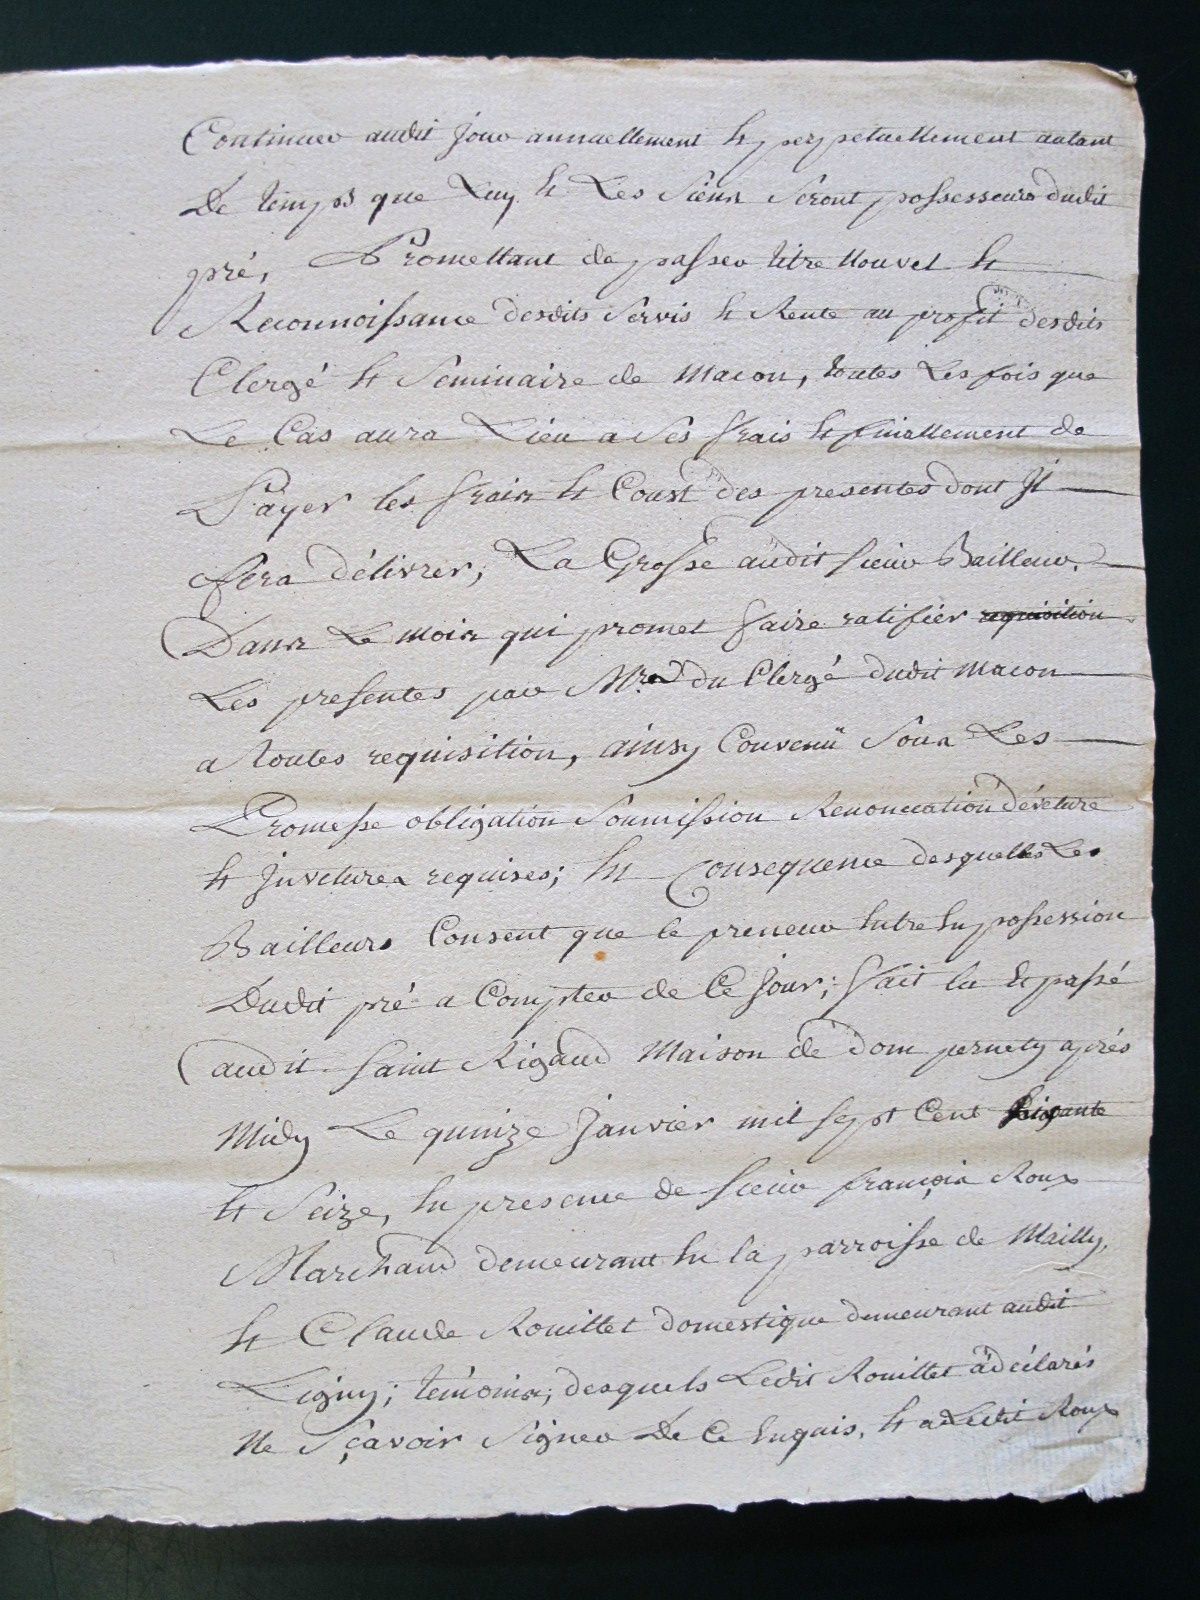 Continuer audit Jour annuellement Et perpetuellement autant
De temps que Luy Et Les Siens Seront possesseurs dudit
pré, Promettant de passer titre Nouvel Et
Reconnoissance desdits Servis Et Rente au profit desdits
Clergé Et Seminaire de Macon, toutes Les fois que
Le Cas aura Lieu a Ses frais Et finallement de
Payer les frais Et Coust des presentes dont Il
fera délivrer, La Grosse audit Sieur Bailleur,
Dans Le mois qui promet faire ratifier requisition
Les presentes par Mrs du Clergé dudit Macon
a toutes requisition, ainsy Convenü Sous Les
Promesse obligation Soumission Renonciation déveture
Et Invetures requises; En Consequence desquelles Les
Bailleurs Consent que le preneur Entre En possession
Dudit pré a Compter de Ce Jour; fait lu Et passé
audit Saint Rigaud Maison de dom pernety aprés
Midy Le quinze Janvier mil sept Cent soixante
Et Seize, En presence de Sieur françois Roux
Marchand demeurant En la parroisse de Mailly,
Et Claude Rouillet domestique demeurant audit
Ligny; témoins, desquels Ledit Rouillet a déclarés
Ne Sçavoir Signer De Ce Enquis, Et a Ledit Roux